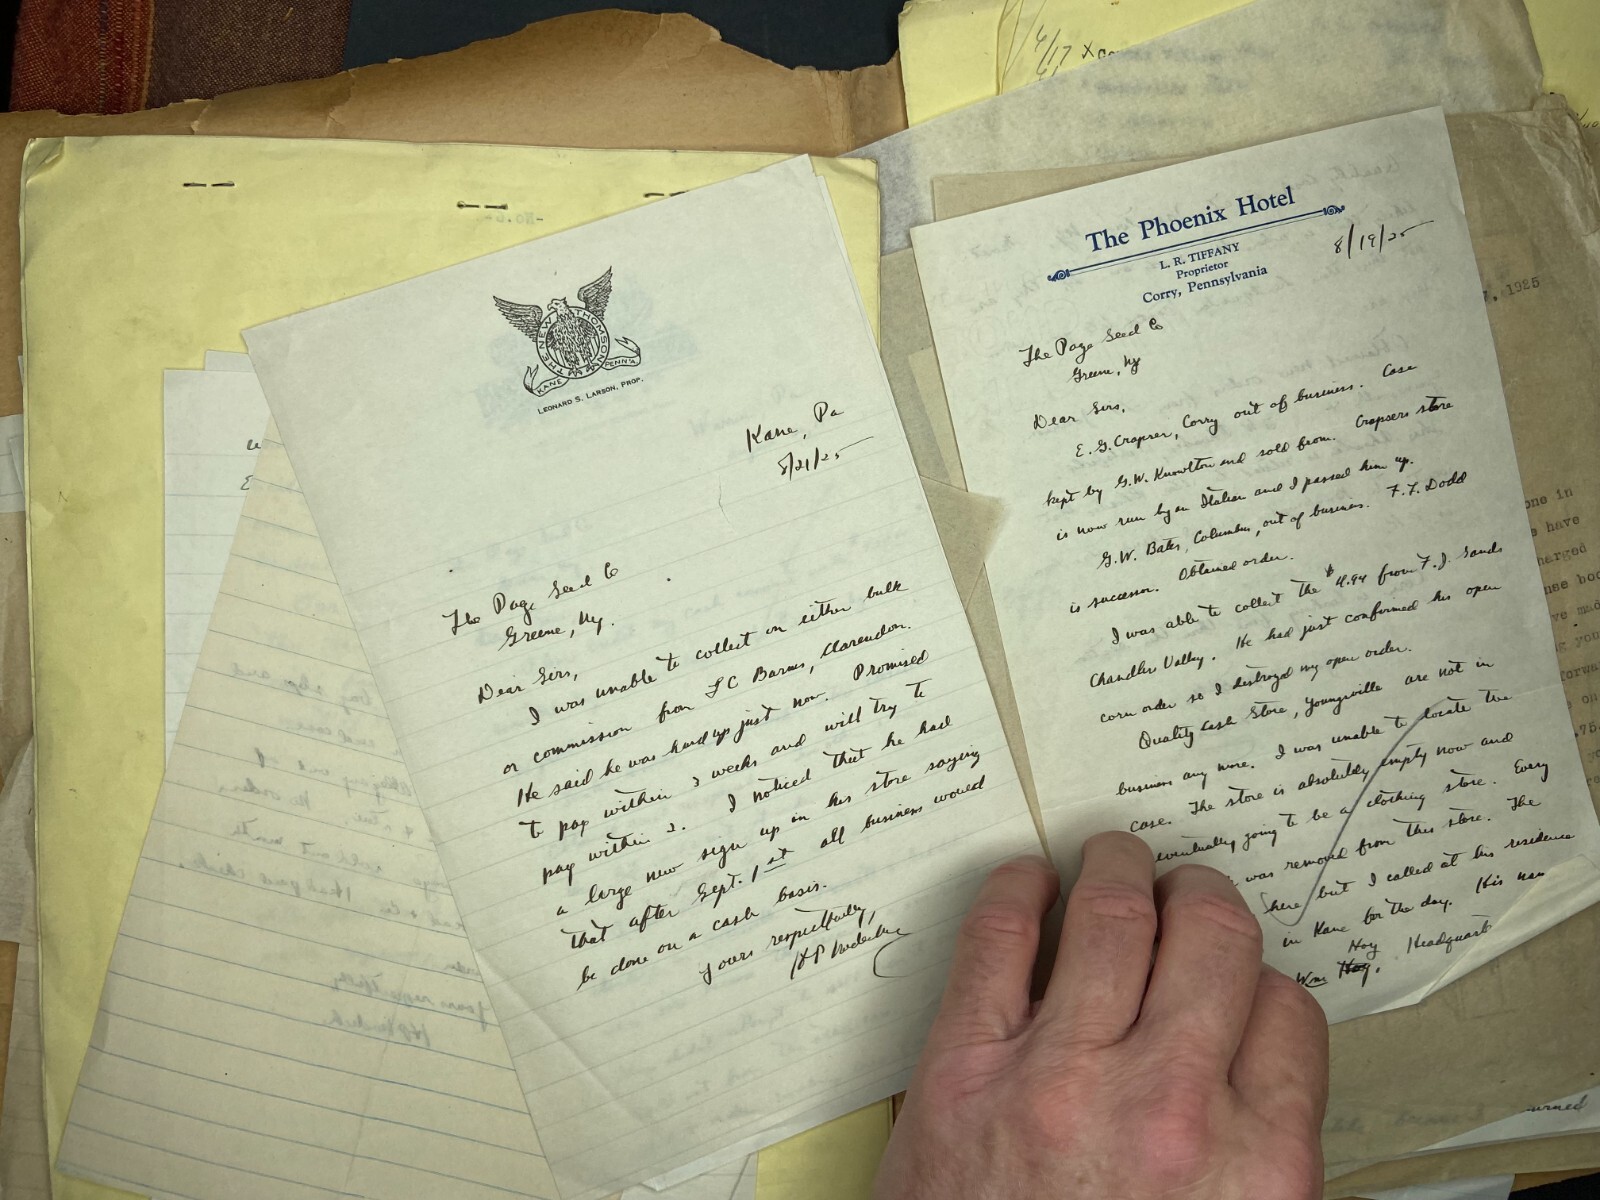 THE NEW THOMSON
KANE PENN'A.
LEONARD S. LARSON, PROP.
Kane, Pa
8/21/25
The Page Seed Co
Greene, Ny.
Dear Sirs,
I was unable to collect on either bulk
or commission from L C Barnes, Clarendon.
He said he was hard up just now. Promised
to pay within 3 weeks and will try to
pay within 2. I noticed that he had
a large new sign up in his store saying
that after Sept. 1st all business would
be done on a cash basis.
Yours respectfully,
The Phoenix Hotel
L. R. TIFFANY
Proprietor
Corry, Pennsylvania
8/19/25
The Page Seed Co
Greene, Ny
Dear Sirs,
E. G. Crapser, Corry out of business. Case
kept by G.W. Knowlton and sold from. Crapsers store
is now run by an Italian and I passed him up.
G.W. Bates, Columbus, out of business. F.F. Dodd
is successor. Obtained order.
I was able to collect the $4.94 from F.J. Sands
Chandlers Valley. He had just confirmed his open
corn order so I destroyed my open order.
Quality Cash Store, Youngsville are not in
business any more. I was unable to locate the
case. The store is absolutely empty now and
eventually going to be a clothing store. Every
was removed from this store. The
here but I called at his residence
in Kane for the day. His nam
Hoy
Wm Hoy. Headquart
6/17
, 1925
one in
have
harged
nse boo
ve mad
g you
forwa
on
.75